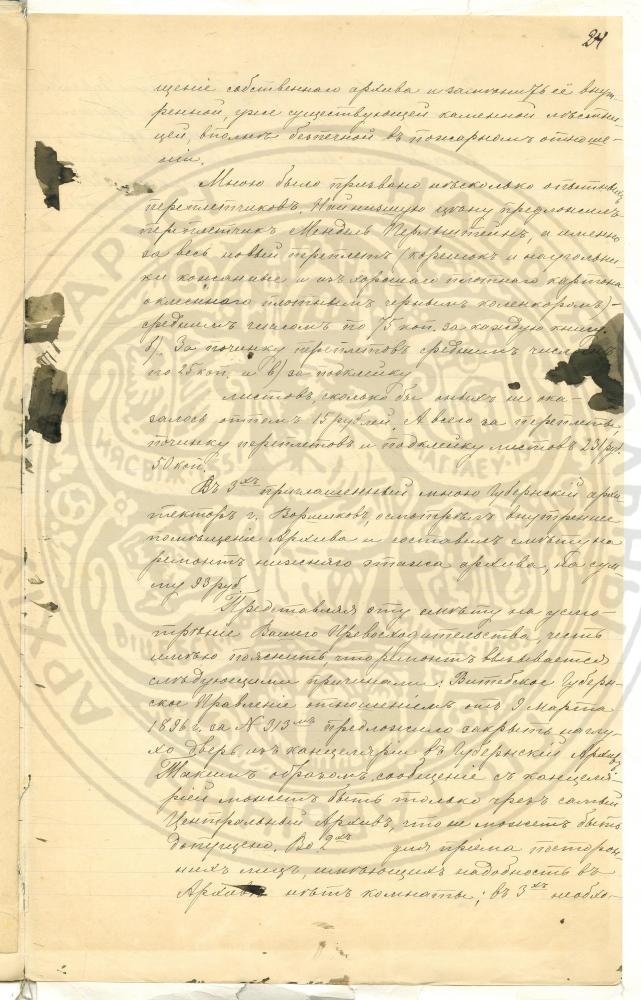 24
щеніе собственнаго архива и замѣнить её внут-
ренной, уже существующей каменной лѣстни-
цей, вполнѣ безпечной въ пожарномъ отноше-
ніи.
Мною было призвано нѣсколько опытныхъ
переплетчиковъ. Наинизшую цѣну предложилъ
переплетчикъ Мендель Перльштейнъ, а именно
за весь новый переплетъ (корешокъ и наугольни-
ки кожаные и изъ хорошаго плотнаго картона
оклеиннаго плотнымъ чернымъ коленкоромъ) -
среднимъ числомъ по 75 коп. за каждую книгу.
б). За починку переплетовъ среднимъ числомъ
по 25 коп. и в) за подклейку
листовъ, сколько бы оныхъ не ока-
залось оптомъ 15 рублей. А всего за переплеты,
починку переплетовъ и подклейку листовъ 231 руб.
50 коп.
Въ 3хъ приглашенный мною Губернскій архи-
текторъ г. осмотрѣлъ внутреннее
помѣщеніе Архива и составилъ смѣту на
ремонтъ нижняго этажа архива, на сум-
му 93 руб.
Представляя эту смѣту на усмо-
трѣніе Вашего Превосходительства, честь
имѣю пояснить, что ремонтъ вызывается
слѣдующими причинами: Витебское Губерн-
ское Правленіе отношеніемъ отъ 9 Марта
1896 г. за № 313мъ предложило закрыть наглу-
хо дверь изъ канцеляріи въ Губернскій Архивъ
Такимъ образомъ, сообщеніе съ канцеля-
ріей можетъ быть только чрезъ самый
Центральный Архивъ, что не можетъ быть
допущено. Во 2хъ для пріема посторон-
нихъ лицъ, имѣющихъ надобность въ
Архивѣ нѣтъ комнаты; въ 3хъ необхо-